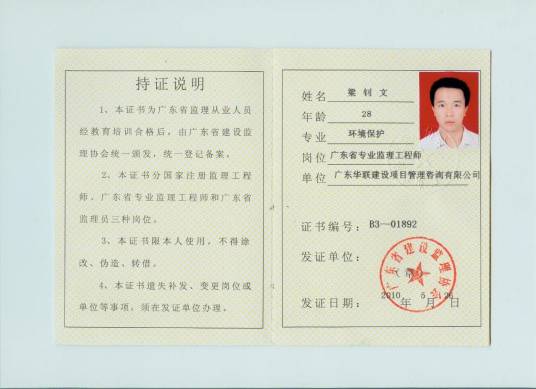 持证说明
1、本证书为广东省监理从业人员
经教育培训合格后，由广东省建设监
理协会统一颁发，统一登记备案。
2、本证书分国家注册监理工程
师、广东省专业监理工程师和广东省
监理员三种岗位。
3、本证书限本人使用，不得涂
改、伪造、转借。
4、本证书遗失补发、变更岗位或
单位等事项，须在发证单位办理。
姓名 梁钊文
年龄 28
专业 环境保护
岗位 广东省专业监理工程师
单位 广东华联建设项目管理咨询有限公司
证书编号：B3—01892
发证单位：
广东省建设监理协会
发证日期：2010年5月26日